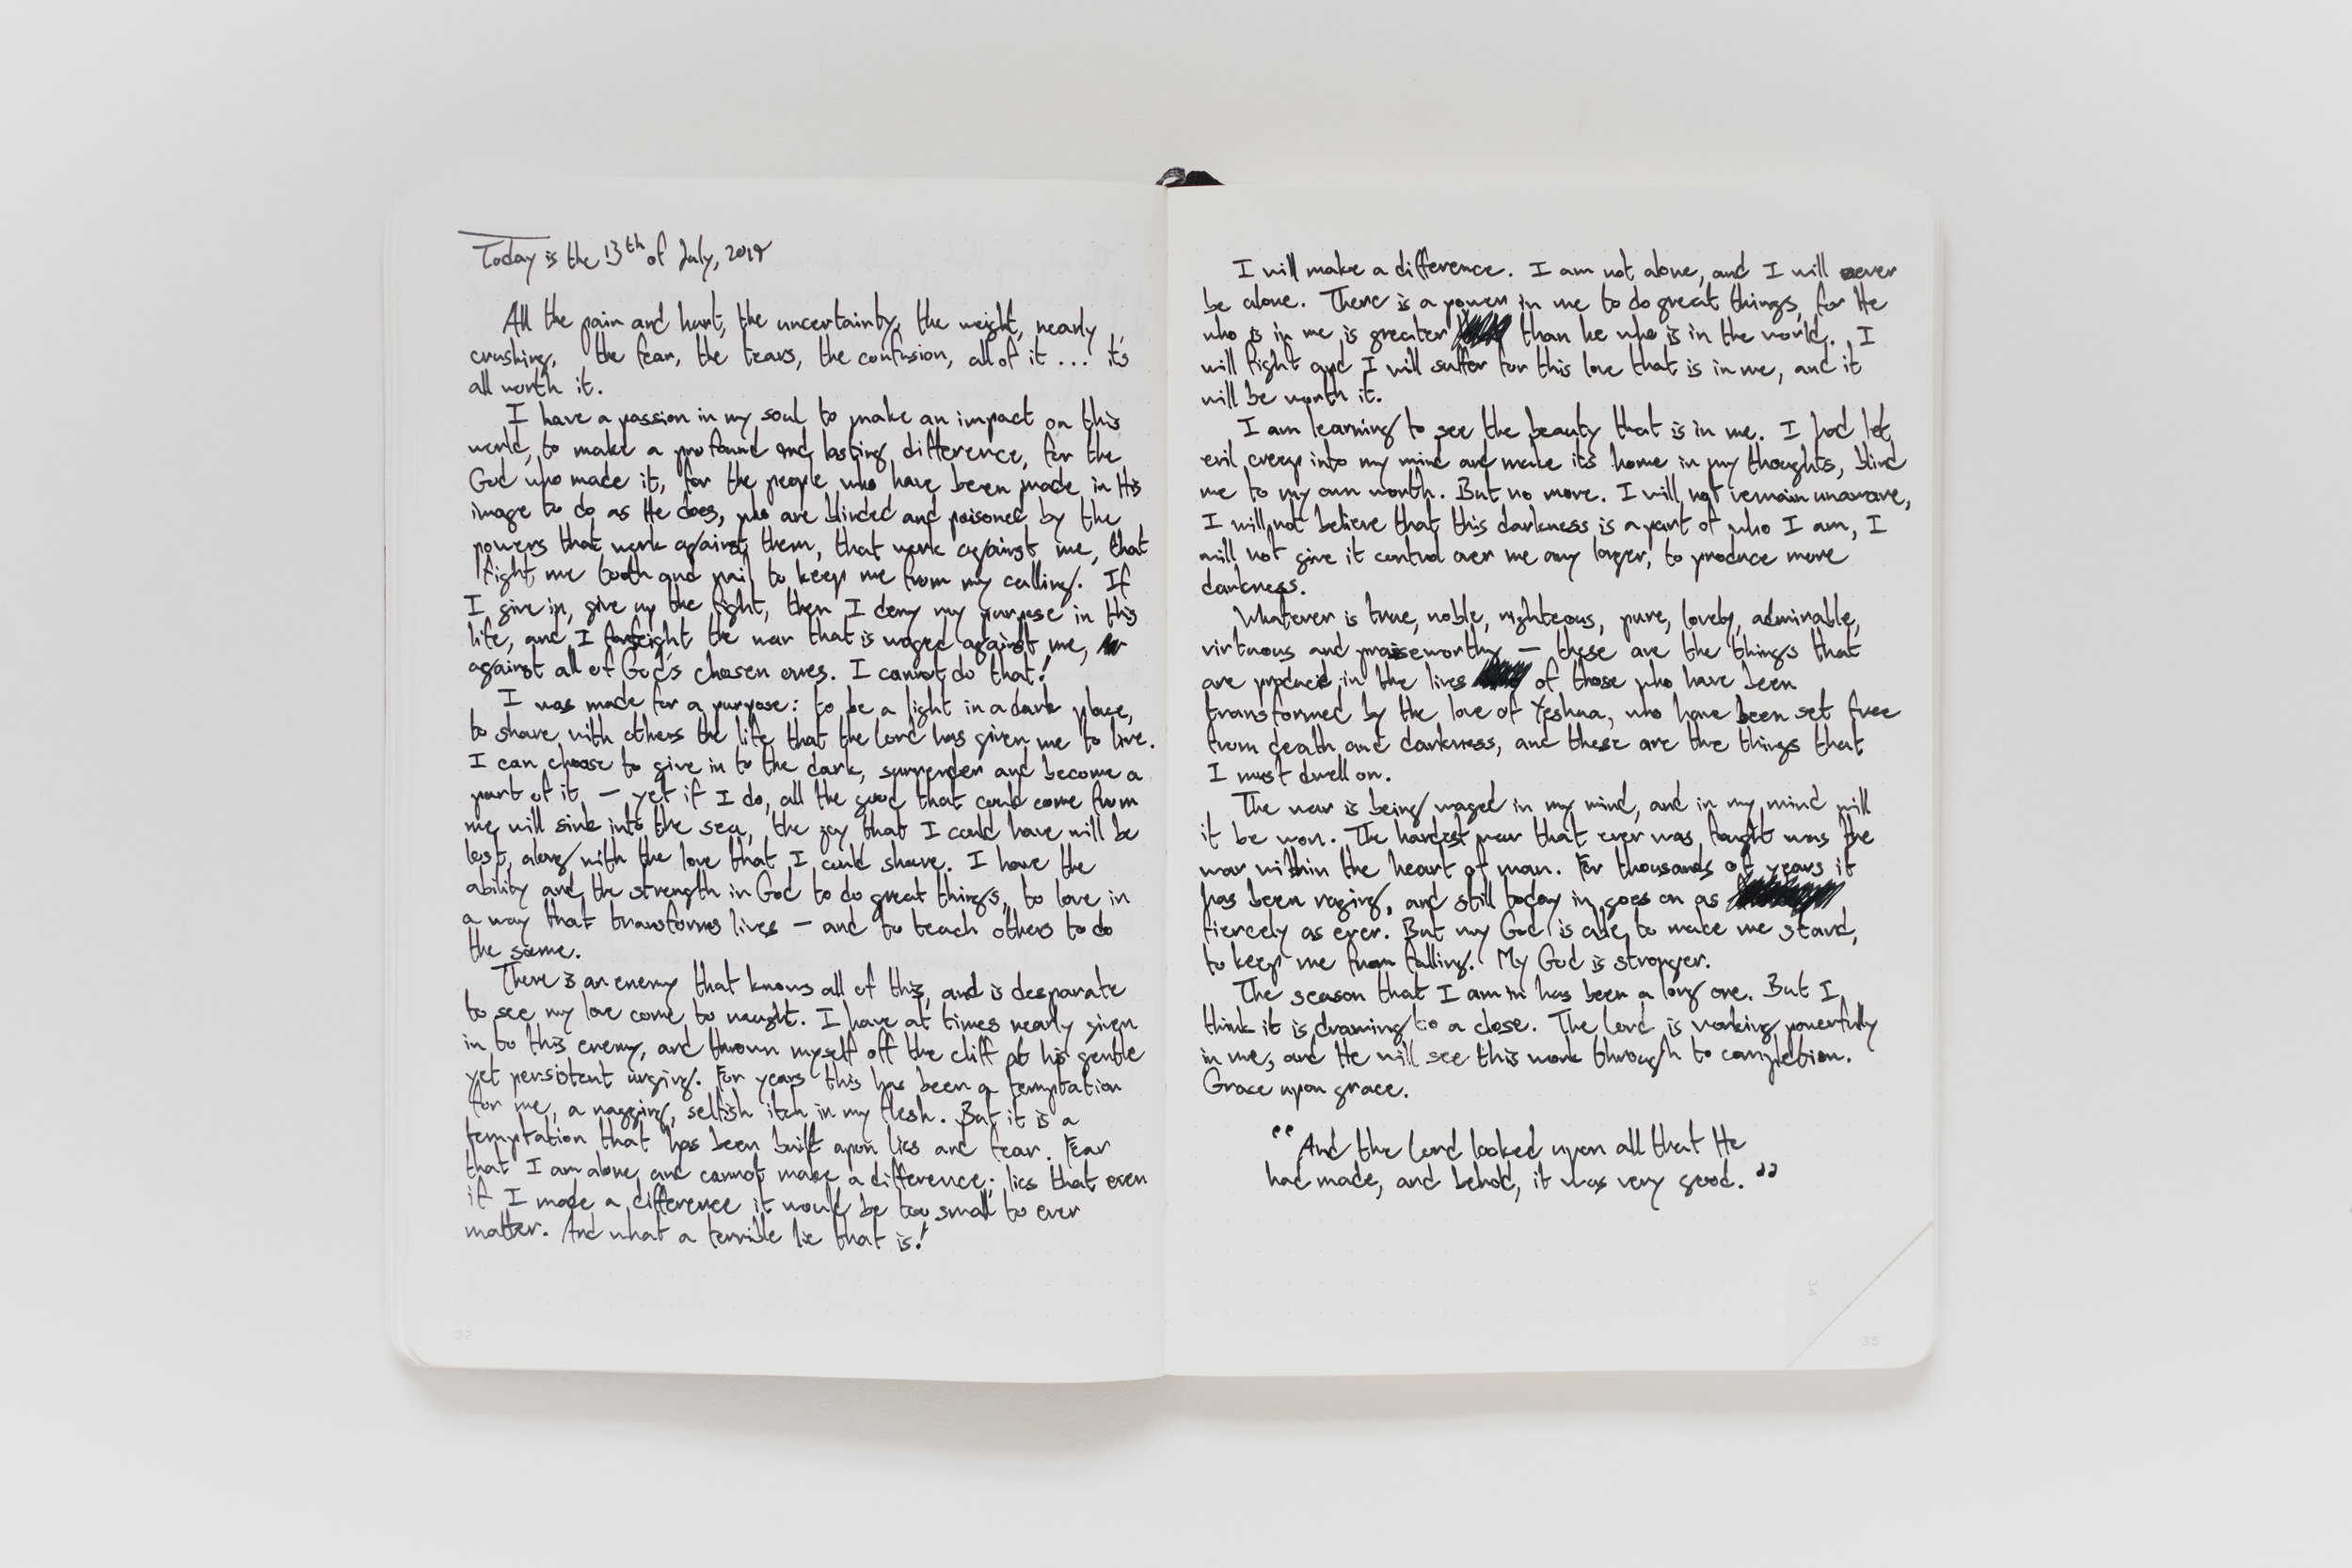 Today is the 13th of July, 2019
All the pain and hurt, the uncertainty, the weight, nearly
crushing, the fear, the tears, the confusion, all of it ... it's
all worth it.
I have a passion in my soul to make an impact on this
world, to make a profound and lasting difference, for the
God who made it, for the people who have been made in His
image to do as He does, who are blinded and poisoned by the
powers that work against them, that work against me, that
fight me tooth and nail to keep me from my calling. If
I give in, give up the fight, then I deny my purpose in this
life, and I forfeight the war that is waged against me,
against all of God's chosen ones. I cannot do that!
I was made for a purpose: to be a light in a dark place,
to share with others the life that the Lord has given me to live.
I can choose to give in to the dark, surrender and become a
part of it — yet if I do, all the good that could come from
me will sink into the sea, the joy that I could have will be
lost, along with the love that I could share. I have the
ability and the strength in God to do great things, to love in
a way that transforms lives — and to teach others to do
the same.
There is an enemy that knows all of this, and is desparate
to see my love come to naught. I have at times nearly given
in to this enemy, and thrown myself off the cliff at his gentle
yet persistent urging. For years this has been a temptation
for me, a nagging, selfish itch in my flesh. But it is a
temptation that has been built upon lies and fear. Fear
that I am alone and cannot make a difference; lies that even
if I made a difference it would be too small to ever
matter. And what a terrible lie that is!
32
I will make a difference. I am not alone, and I will never
be alone. There is a power in me to do great things, for He
who is in me is greater than he who is in the world. I
will fight and I will suffer for this love that is in me, and it
will be worth it.
I am learning to see the beauty that is in me. I had let
evil creep into my mind and make its home in my thoughts, blind
me to my own worth. But no more. I will not remain unaware,
I will not believe that this darkness is a part of who I am, I
will not give it control over me any longer, to produce more
darkness.
Whatever is true, noble, righteous, pure, lovely, admirable,
virtuous and praiseworthy — these are the things that
are produced in the lives of those who have been
transformed by the love of Yeshua, who have been set free
from death and darkness, and these are the things that
I must dwell on.
The war is being waged in my mind, and in my mind will
it be won. The hardest war that ever was fought was the
war within the heart of man. For thousands of years it
has been raging, and still today in goes on as
fiercely as ever. But my God is able to make me stand,
to keep me from falling. My God is stronger.
The season that I am in has been a long one. But I
think it is drawing to a close. The Lord is working powerfully
in me, and He will see this work through to completion.
Grace upon grace.
"And the Lord looked upon all that He
had made, and behold, it was very good."
34
35